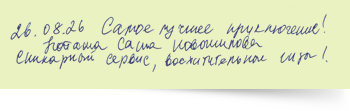 26.08.26 Самое лучшее приключение!
Наташа Саша Новошилова
Шикарный сервис, восхитительные гиды!